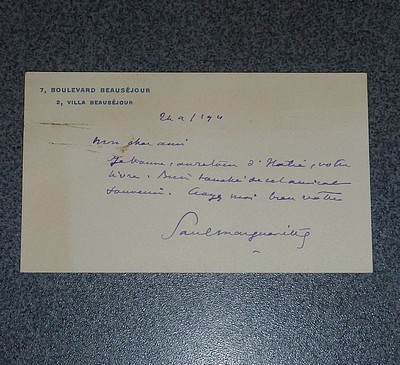 7, BOULEVARD BEAUSÉJOUR
2, VILLA BEAUSÉJOUR
Mon cher ami
Je trouve, au retour d'Italie, votre
livre. Bien touché de cet amical
souvenir. Croyez moi bien vôtre
Paul Margueritte